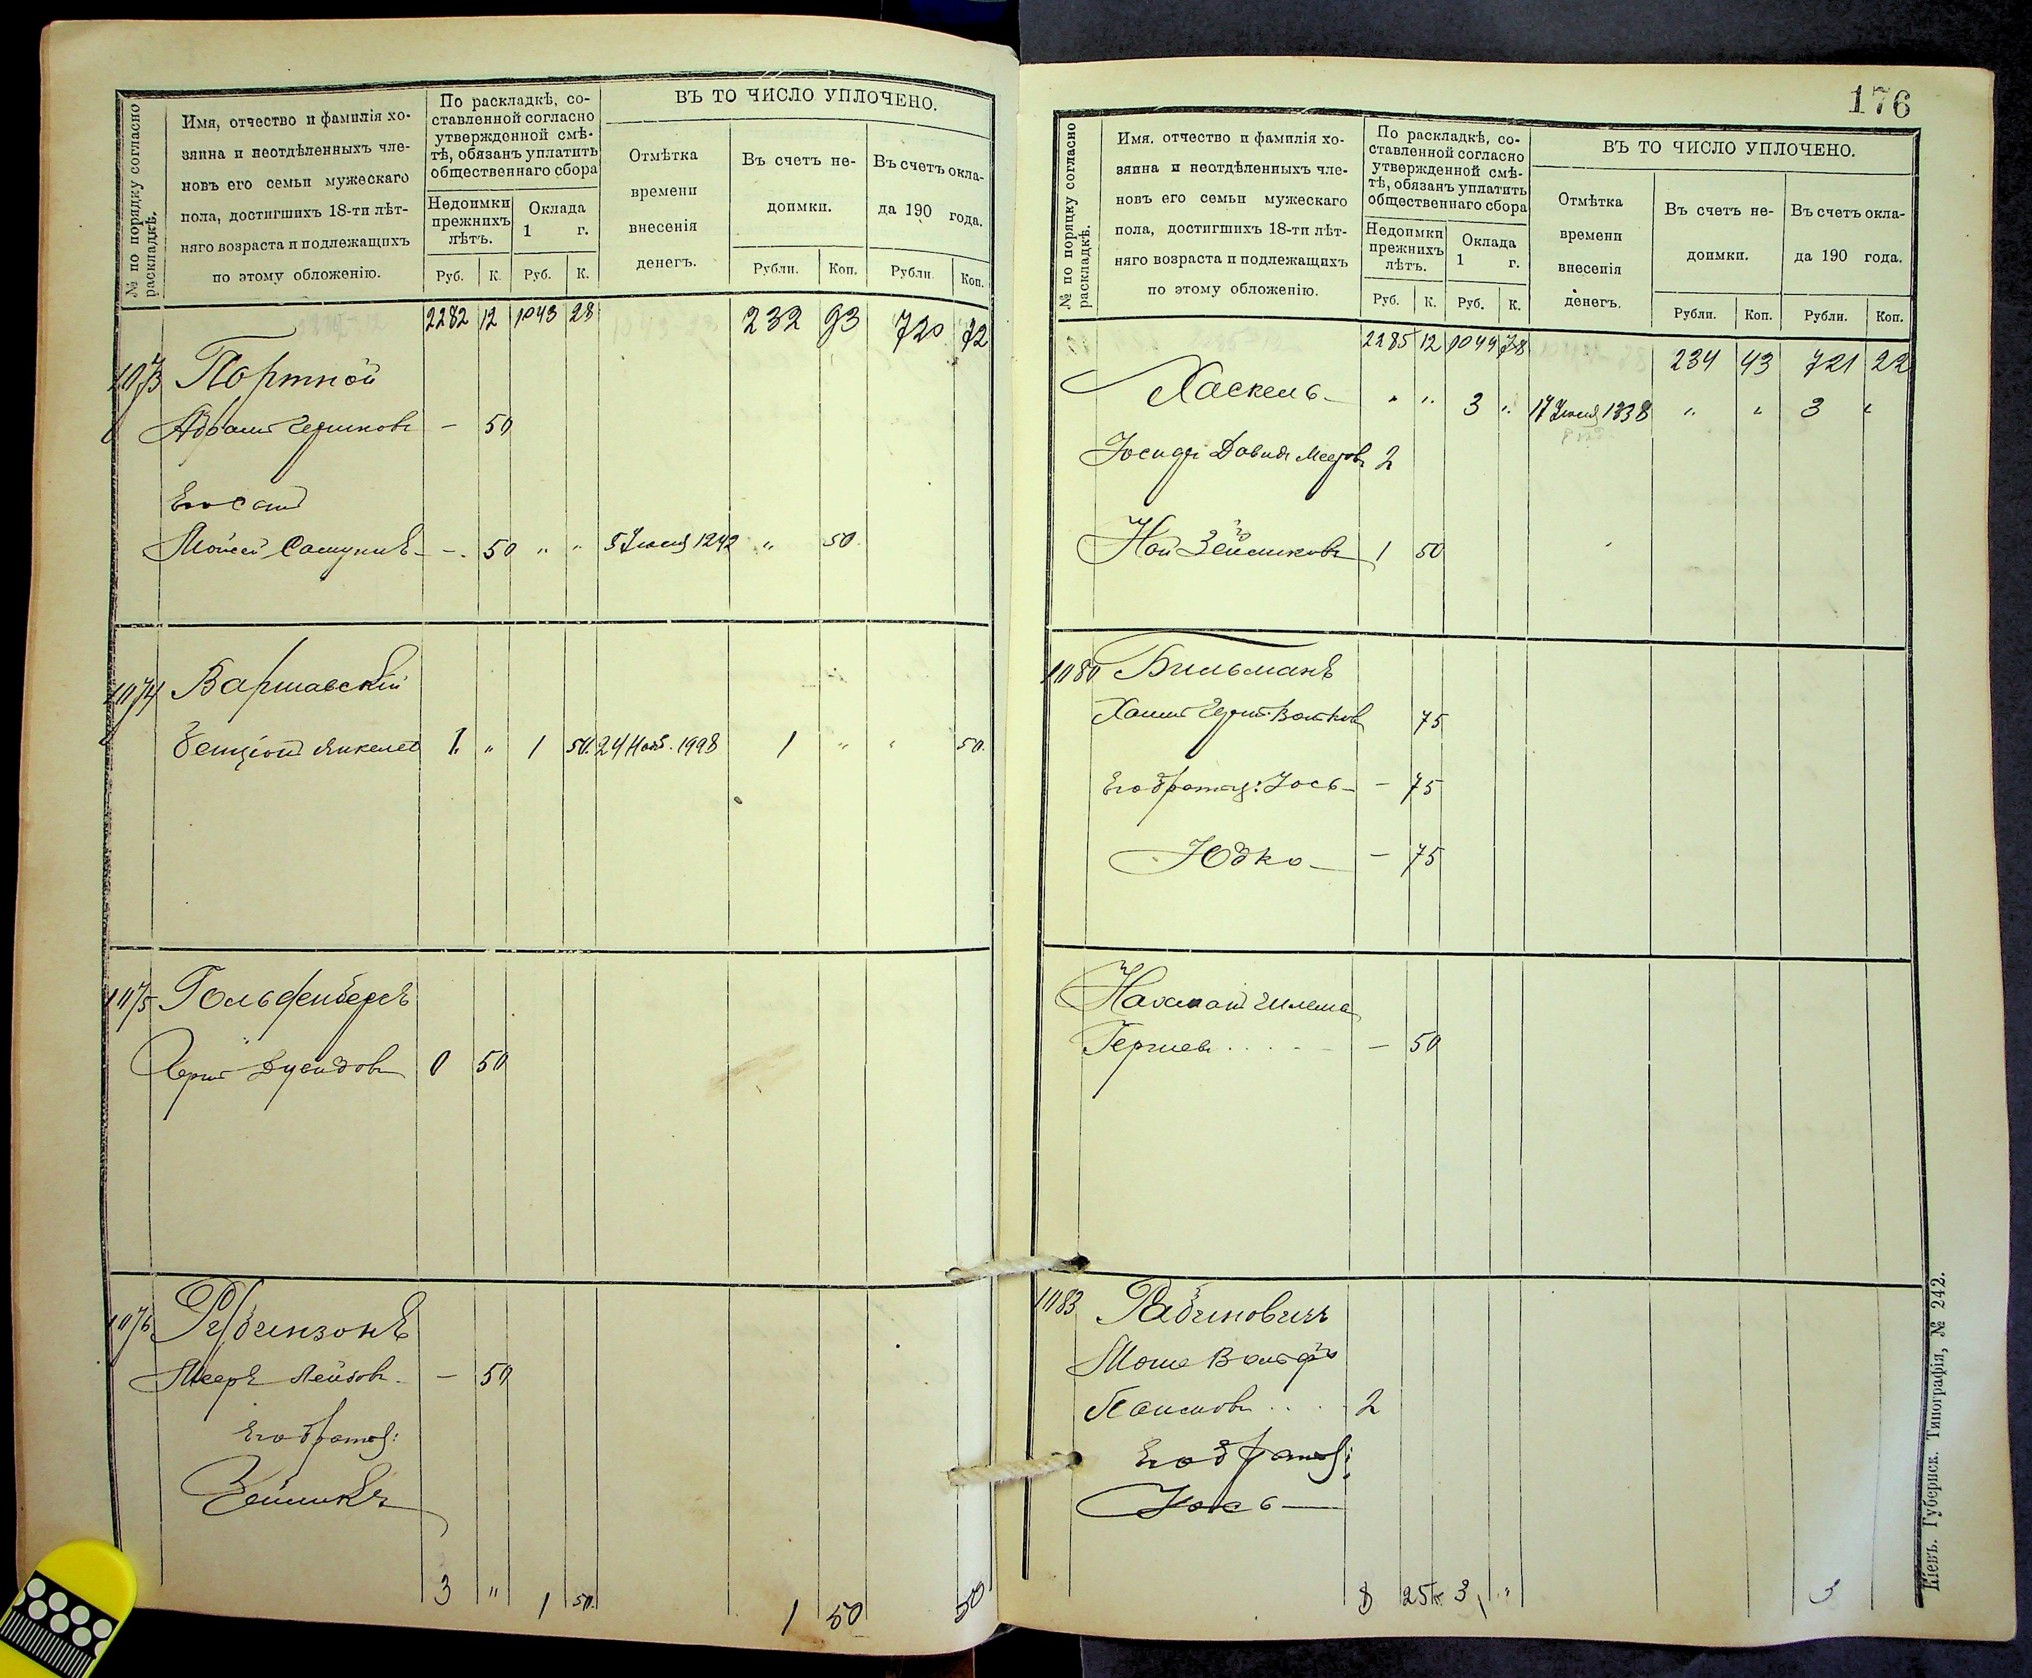 № по порядку согласно раскладкѣ.
Имя, отчество и фамилія хо-
зяина и неотдѣленныхъ чле-
новъ его семьи мужескаго
пола, достигшихъ 18-ти лѣт-
няго возраста и подлежащихъ
по этому обложенію.
По раскладкѣ, со-
ставленной согласно
утвержденной смѣ-
тѣ, обязанъ уплатить
общественнаго сбора
Недоимки прежнихъ лѣтъ.
Оклада 1 г.
Руб. К. Руб. К.
ВЪ ТО ЧИСЛО УПЛОЧЕНО.
Отмѣтка времени внесенія денегъ.
Въ счетъ не-
доимки.
Въ счетъ окла-
да 190 года.
Рубли. Коп. Рубли. Коп.
2282 12 1043 28 232 93 720 72
1073 Портной
Абрамъ Гершковъ — 50
Его
Мойсей — 50 " " 5 Іюля 1242 " 50
1074 Варшавскій
Бенціонъ Янкелев 1 " 1 50 24 Нояб. 1998 1 " " 50
1075 Гольденбергъ
0 50
1076 Рубинзонъ
Мееръ Лейбовъ — 50
Его братья:
Зейликъ
3 " 1 50 1 50 50
176
№ по порядку согласно раскладкѣ.
Имя. отчество и фамилія хо-
зяина и неотдѣленныхъ чле-
новъ его семьи мужескаго
пола, достигшихъ 18-ти лѣт-
няго возраста и подлежащихъ
по этому обложенію.
По раскладкѣ, со-
ставленной согласно
утвержденной смѣ-
тѣ, обязанъ уплатить
общественнаго сбора
Недоимки прежнихъ лѣтъ.
Оклада 1 г.
Руб. К. Руб. К.
ВЪ ТО ЧИСЛО УПЛОЧЕНО.
Отмѣтка времени внесенія денегъ.
Въ счетъ не-
доимки.
Въ счетъ окла-
да 190 года.
Рубли. Коп. Рубли. Коп.
2285 12 1044 78 234 43 721 22
Хаскель " " 3 " 17 Іюля 1338 " " 3 "
Іосифъ Давидъ Мееровъ 2
Ной Зейликовъ 1 50
1080 Бильманъ
Хаимъ Герш. Волковъ 75
Его братья: Іось — 75
Юдко — 75
Нахманъ Гилелъ
— 50
1083 Рабиновичъ
Моше Вольфъ
2
Его братья:
Іось
8 25 3 " 3
Кіевъ. Губернск. Типографія, № 242.